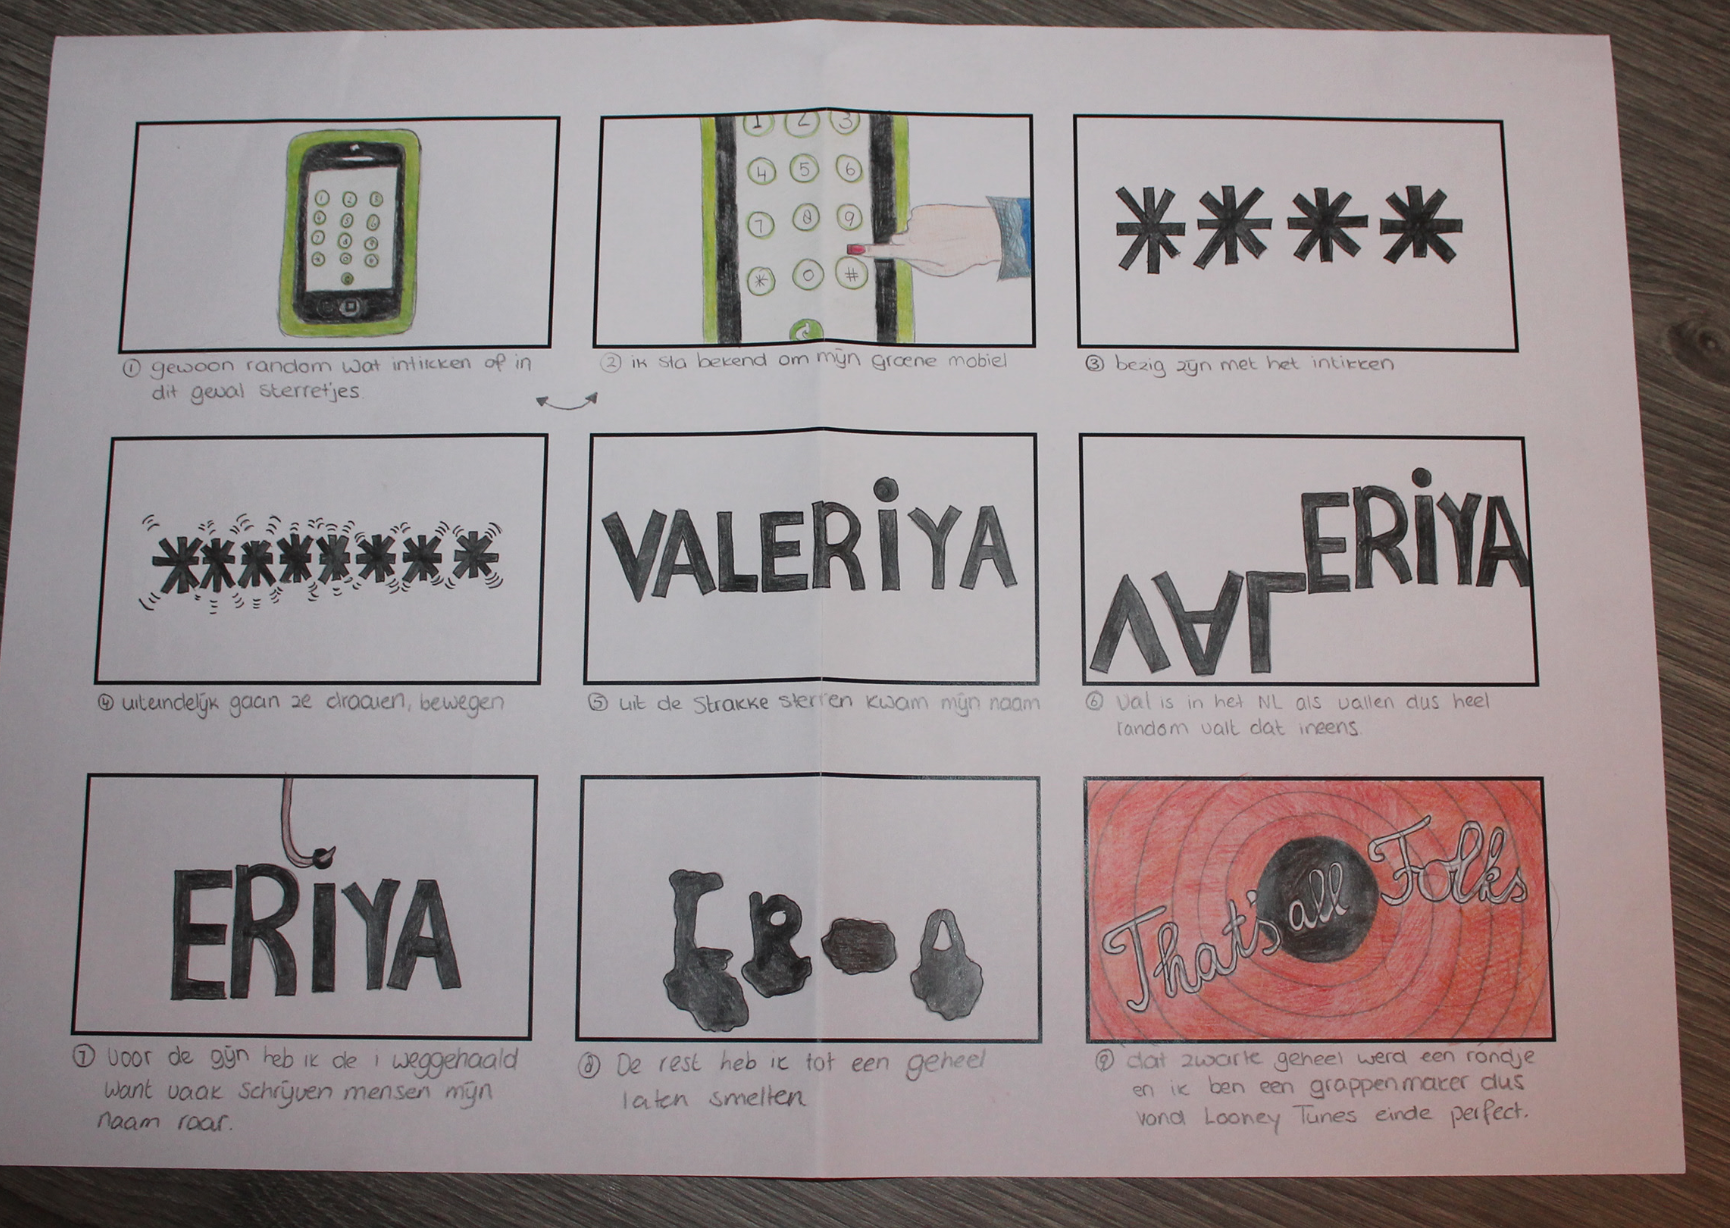 1 2 3
4 5 6
7 8 9
* 0 #
* * * *
① gewoon random wat intikken of in
dit geval sterretjes
② ik sta bekend om mijn groene mobiel
③ bezig zijn met het intikken
* * * * * * * *
VALERiYA
VAL ERiYA
④ uiteindelijk gaan ze draaien, bewegen
⑤ uit de strakke sterren kwam mijn naam
⑥ Val is in het NL als vallen dus heel
random valt dat ineens.
ERiYA
E R A
That's all Folks
⑦ voor de gijn heb ik de i weggehaald
want vaak schrijven mensen mijn
naam raar.
⑧ De rest heb ik tot een geheel
laten smelten
⑨ dat zwarte geheel werd een rondje
en ik ben een grappenmaker dus
vond Looney Tunes einde perfect.